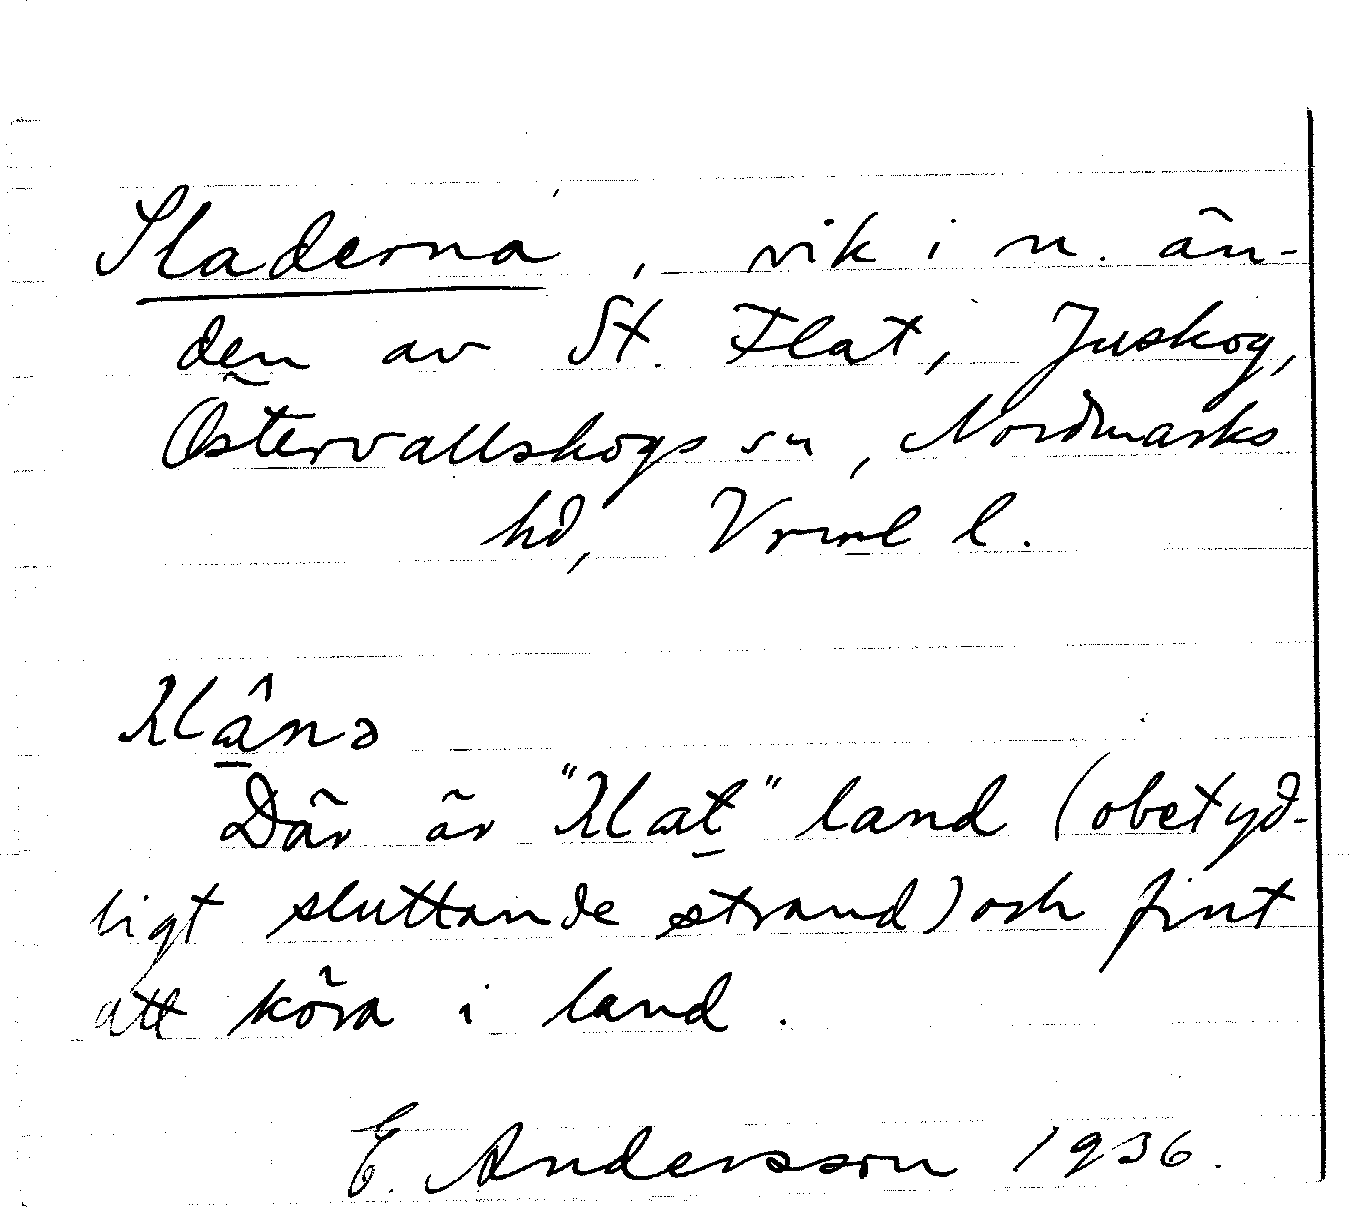 Sladerna, vik i n. än-
den av St. Flat, Juskog,
Östervallskogs sn, Nordmarks
hd, Vrml l.
Där är " " land (obetyd-
ligt sluttande strand) och fint
att köra i land.
E. Andersson 1936.